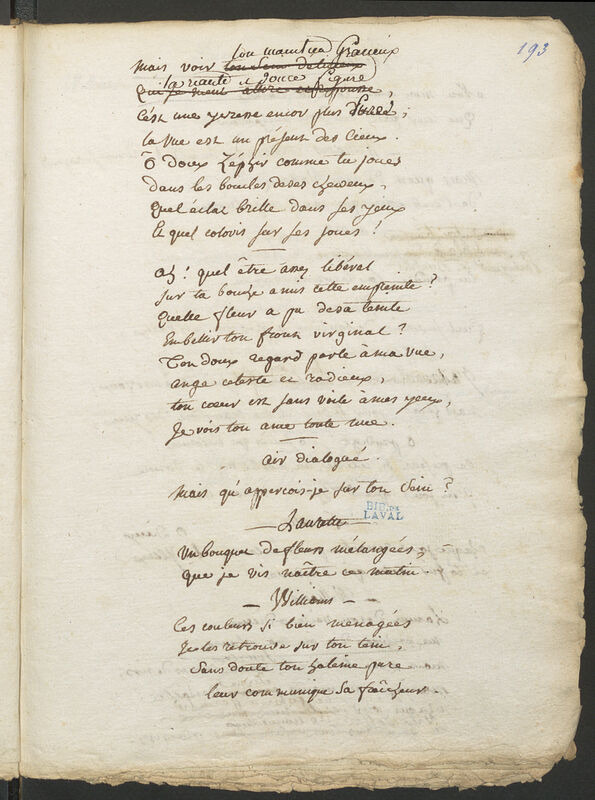 193
ton maintien Gracieux
mais voir ton sein délicieux
la riante et douce figure
Qui
C'est une yvresse encor plus pure ;
la vue est un présent des Cieux.
ô doux Zéphir comme tu joues
dans les boucles de ses cheveux,
Quel éclat brille dans ses yeux
Et quel coloris sur ses joues !
ah ! quel être assez libéral
sur ta bouche a mis cette empreinte ?
Quelle fleur a pu de sa teinte
Embellir ton front virginal ?
Ton doux regard parle à ma vue,
ange céleste et radieux,
ton cœur est sans voile à mes yeux,
Je vois ton ame toute nue.
air dialogué.
mais qu'apperçois-je sur ton sein ?
BIB. DE
LAVAL
— Laurette —
un bouquet de fleurs mélangées, —
que je vis naître ce matin.
— Williams —
Ces couleurs si bien menagées
Je les retrouve sur ton tein,
sans doute ton haleine pure
leur communique sa fraîcheur